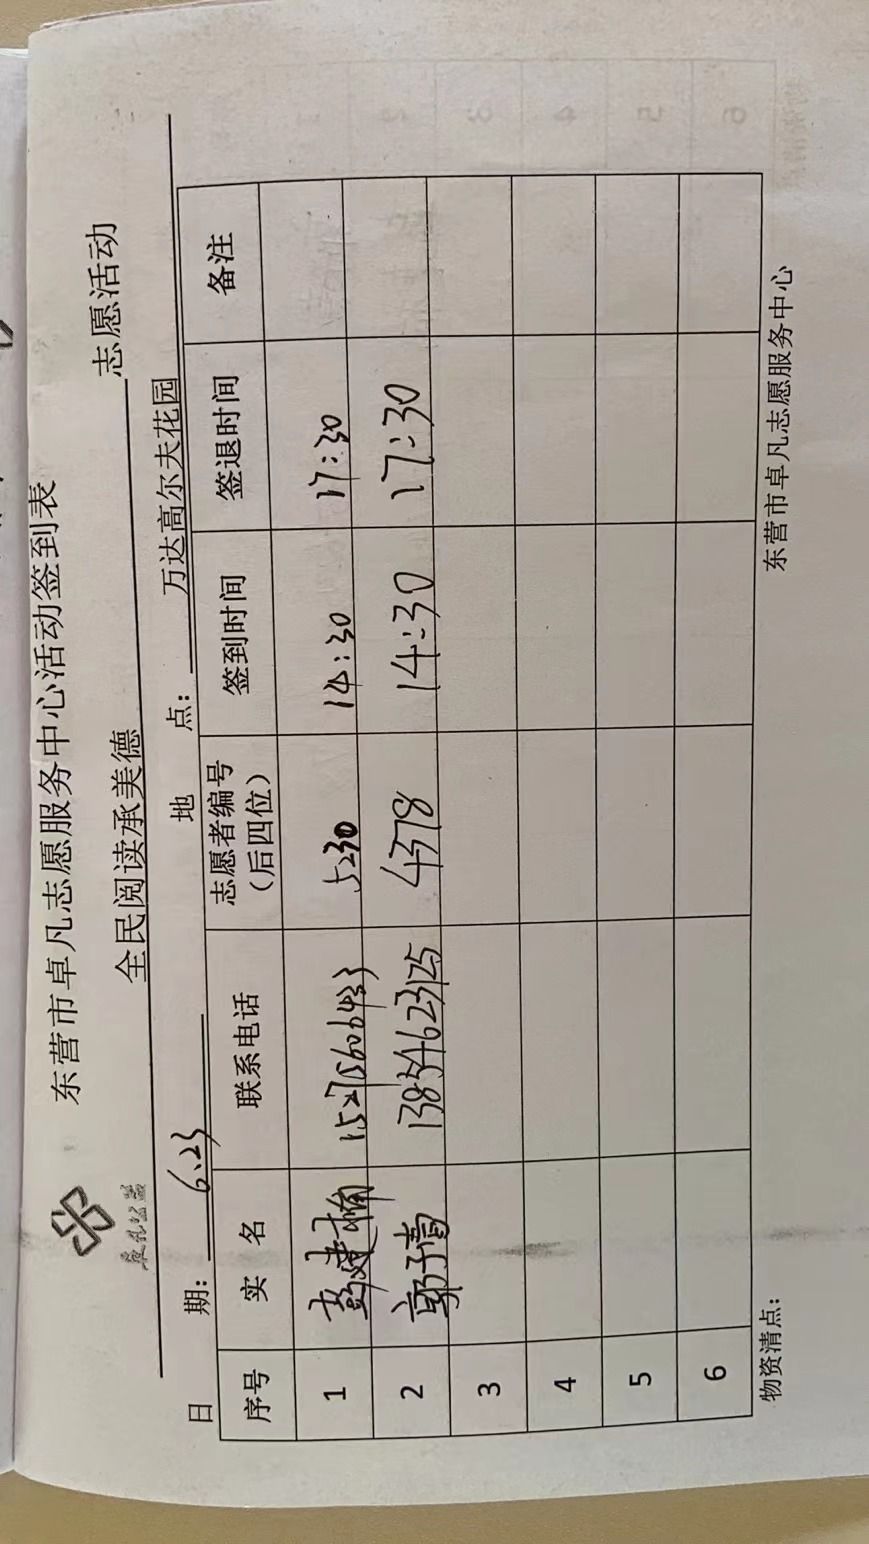 东营市卓凡志愿服务中心活动签到表
全民阅读承美德 志愿活动
日期: 6.23 地点: 万达高尔夫花园
序号 实名 联系电话 志愿者编号（后四位） 签到时间 签退时间 备注
1 彭建楠 15275606433 5230 14:30 17:30
2 郭子萱 13854623125 4378 14:30 17:30
3
4
5
6
物资清点: 东营市卓凡志愿服务中心